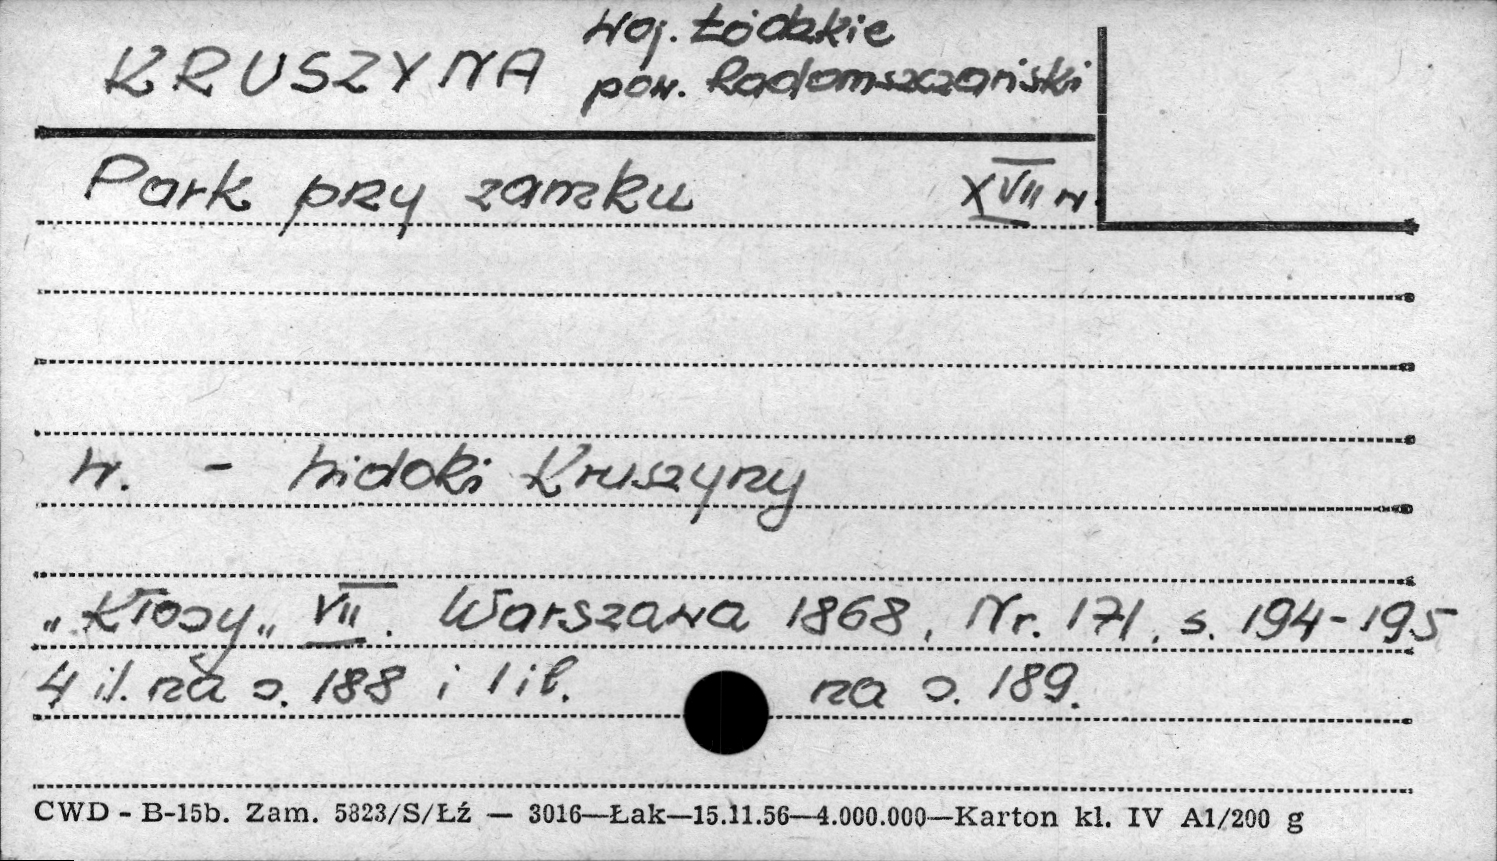 KRUSZYNA woj. Łódzkie
pow. Radomszczański
Park przy zamku XVII w.
w. - widoki Kruszyny
„Kłosy„ VII. Warszawa 1868, Nr. 171, s. 194-195
4 il. na s. 188 i 1 il. na s. 189.
CWD - B-15b. Zam. 5823/S/Łź — 3016—Łak—15.11.56—4.000.000—Karton kl. IV A1/200 g